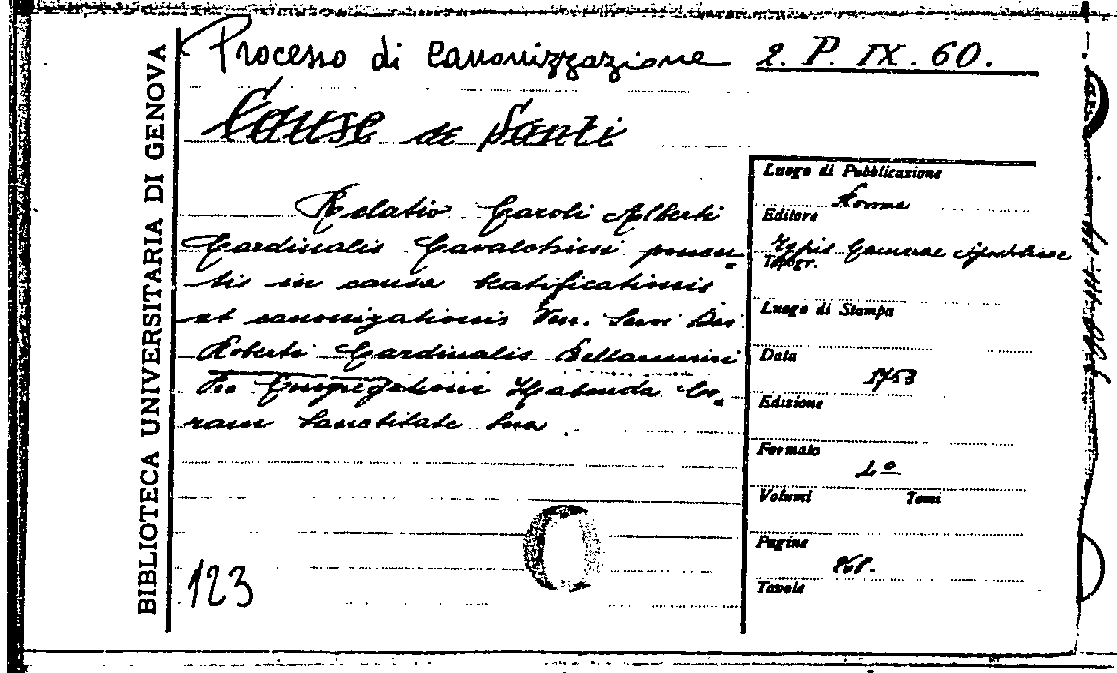 BIBLIOTECA UNIVERSITARIA DI GENOVA
Processo di canonizzazione
2. P. IX. 60.
Cause di Santi
Relatio Caroli Alberti
Cardinalis Cavalchini ponen=
tis in causa beatificationis
et canonizationis Ven. Servi Dei
Roberti Cardinalis Bellarmini
Pro Congregatione Habenda Co=
ram Sanctitate Sua.
123
Luogo di Pubblicazione
Romae
Editore
Typis Camerae Apostolicae
Tipogr.
Luogo di Stampa
Data
1753
Edizione
Formato
Volumi Tomi
Pagine
Tavole